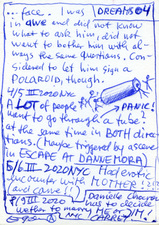 ...face. I was DREAMS 04
in awe and did not know
what to ask him; did not
want to bother him with al-
ways the same questions. Con-
sidered to let him sign a
POLAROID, though.
4/5 III 2020 NYC
PANIC!
A LOT of people
want to go through a tube
at the same time in BOTH direc-
tions. (Maybe triggered by a scene
in ESCAPE AT DANNEMORA)
5/6 III 2020 NYC Had erotic
encounter with MOTHER
and came!)
Danielle
8/9 III 2020 has to decide
to marry
NYC